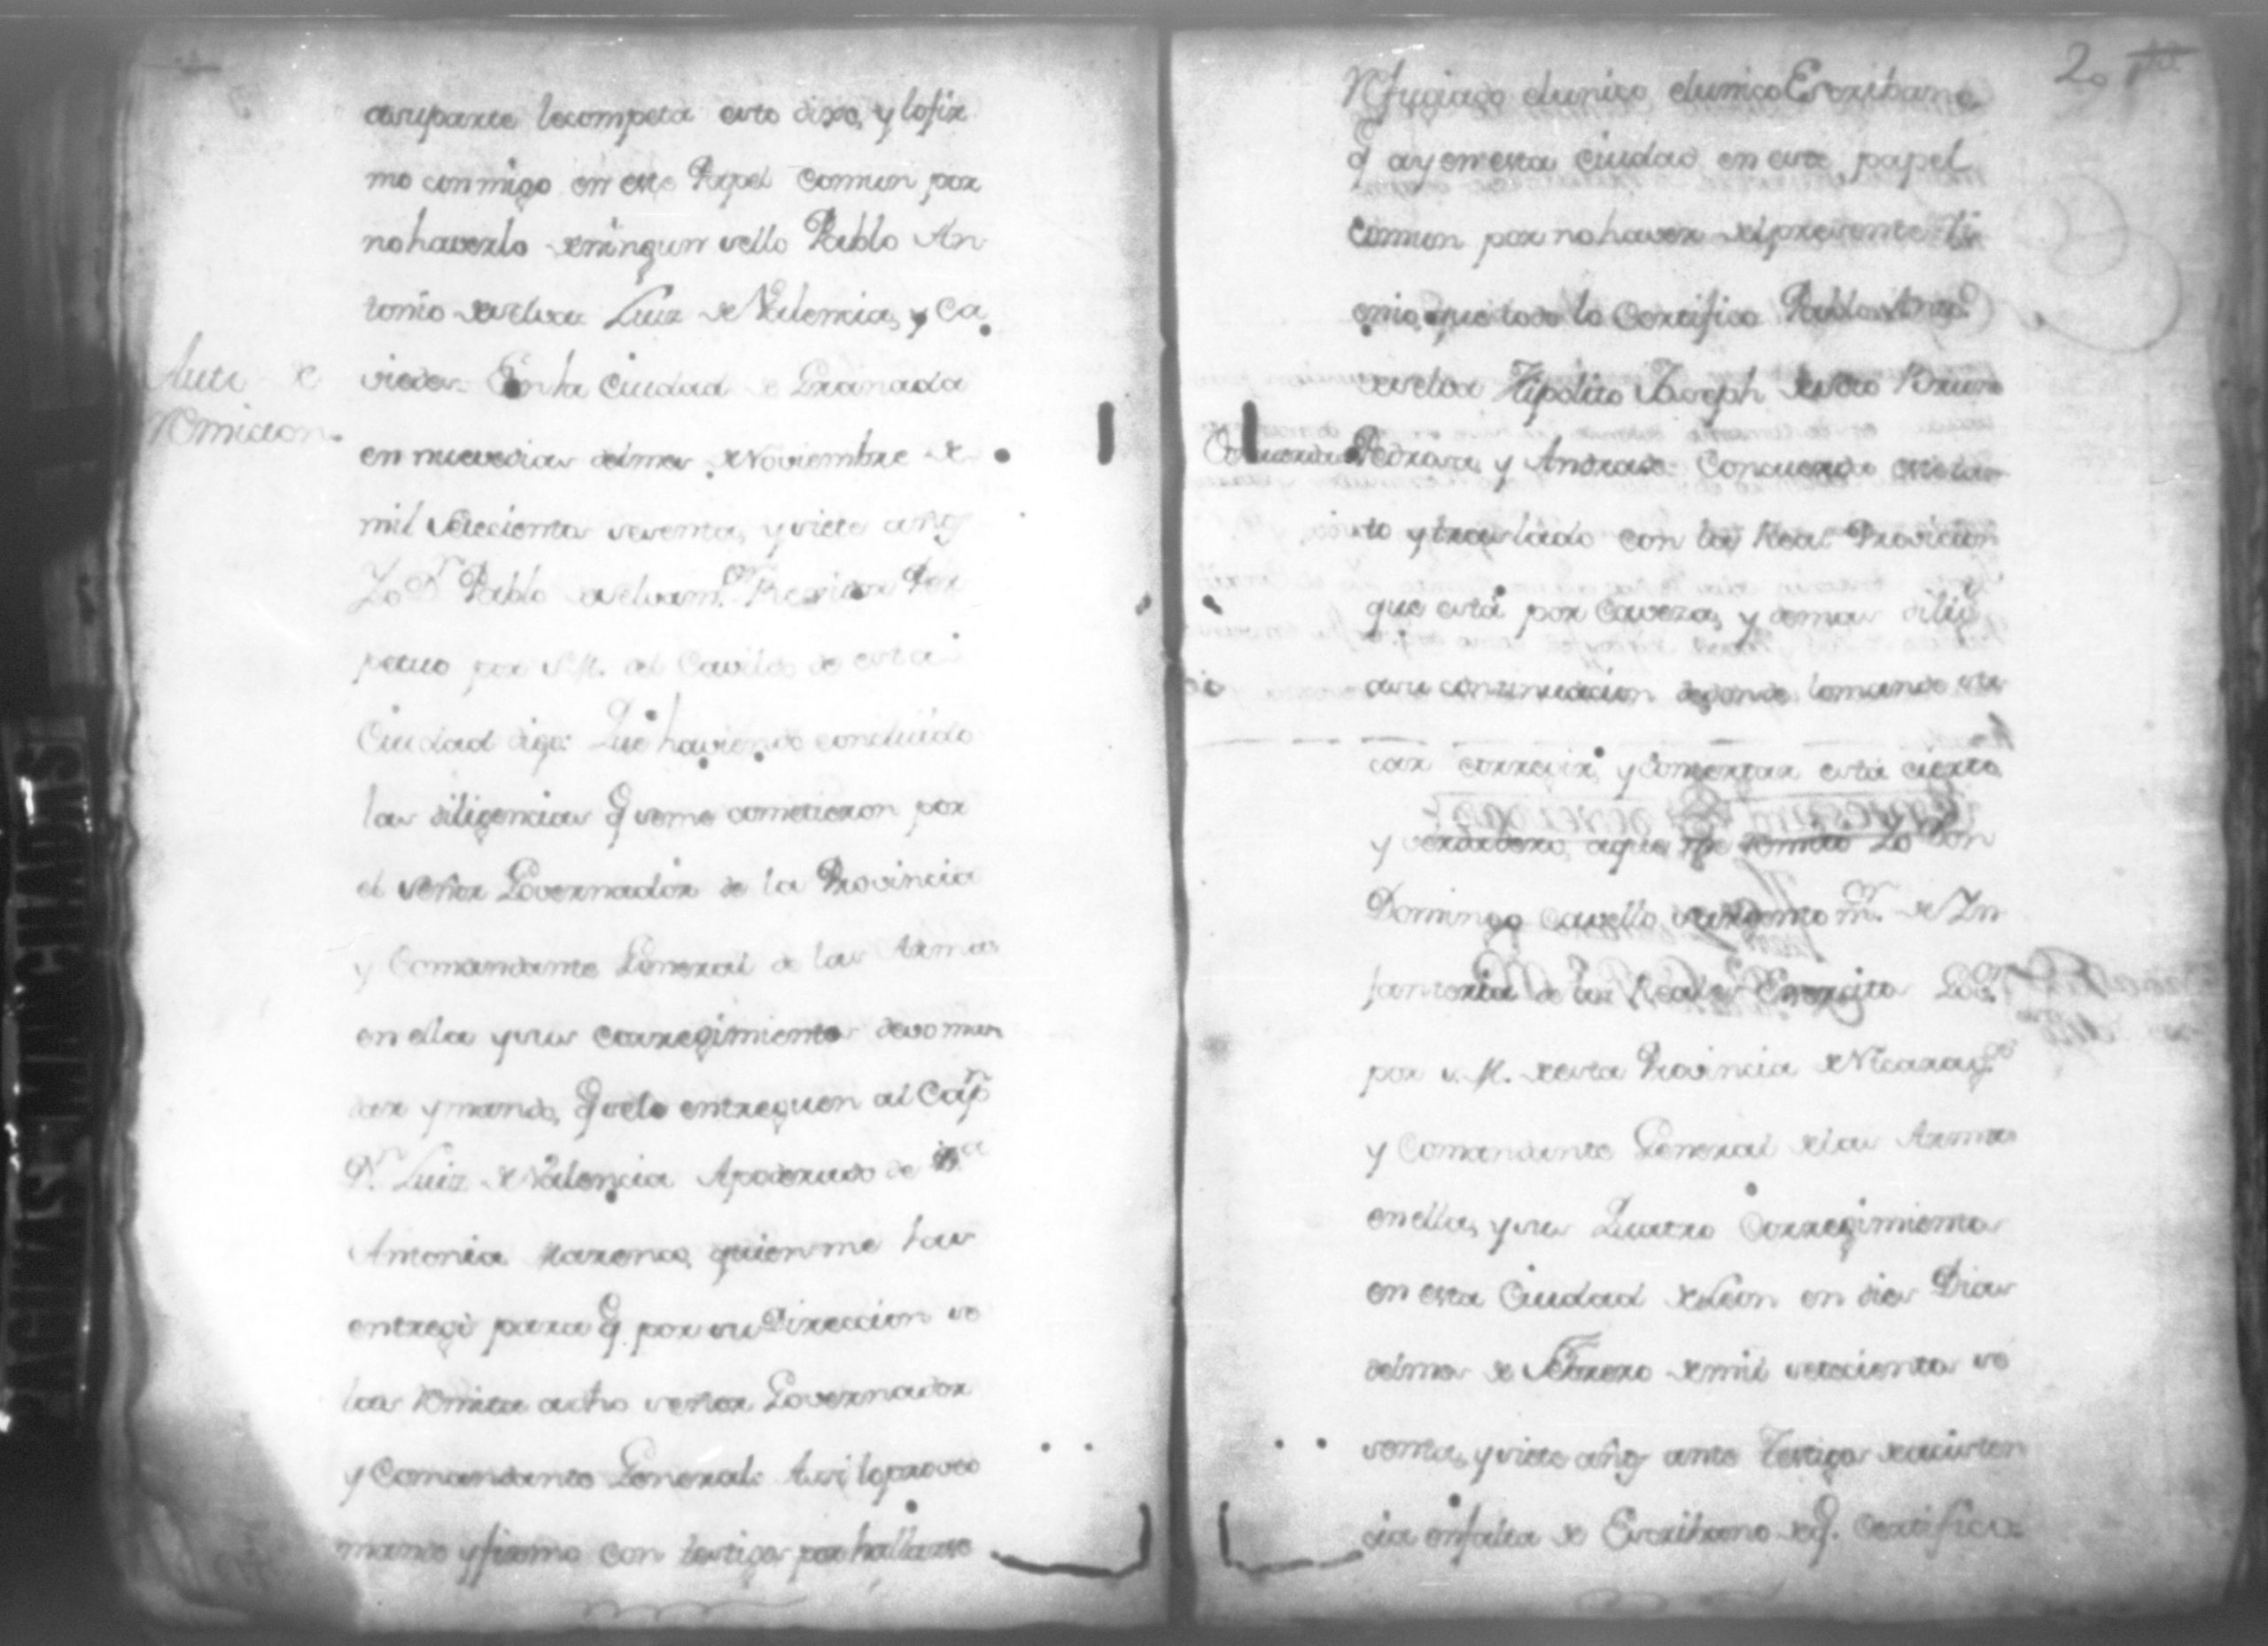 asuparte lecompeta esto dixo, y lofir
mo conmigo en este Papel comun por
nohaverlo deningun sello Pablo An
tonio deselva Luiz deValencia, y Ca
Auto de
Remicion.
viedes. En la Ciudad de Granada
en nuevedias delmes deNoviembre de
mil Setecientos sesenta, ysiete años
Yo Dn Pablo deselva mor Regidor Per
petuo por S.M. del Cavildo de esta
Ciudad digo: Que haviendo concluido
las diligencias q seme cometieron por
el Señor Governador de la Provincia
y Comandante General de las Armas
en ella ysus corregimientos devo man
dar ymando, q selo entreguen al Capn
Dn Luiz deValencia Apoderado de
Antonia quienme las
entregó para q. por su Direccion se
las Remita adho señor Governador
y Comandante General: Asi loproveo
mando yfirmo con testigos por hallarse
2.
Refugiado elunico elunico Escribano
q ay enesta Ciudad en este papel
comun por nohaver delpresente Vi
enio, que todo lo Certifico Pablo Anto
deselva Hipolito Joseph deSoto Bruno
Concuerda
Pedrosa, y Andrade. Concuerda estetan
to ytraslado con la Real Provicion
que está por Caveza, y demas dilig
asu continuacion dedonde lomande sa
car corregir, yconsertar está cierto,
y verdadero, aque me remito Yo Don
Domingo Cavello sargento mor de In
fanteria de los Reales Exercitos Govr
por S.M. deesta Provincia deNicaragua
y Comandante General delas Armas
enella, ysus Quatro Corregimientos
en esta Ciudad deLeon en dies Dias
delmes de Febrero demil setecientos se
senta, ysiete años ante testigos deasisten
cia enfalta de Escribano deq. Certifico: